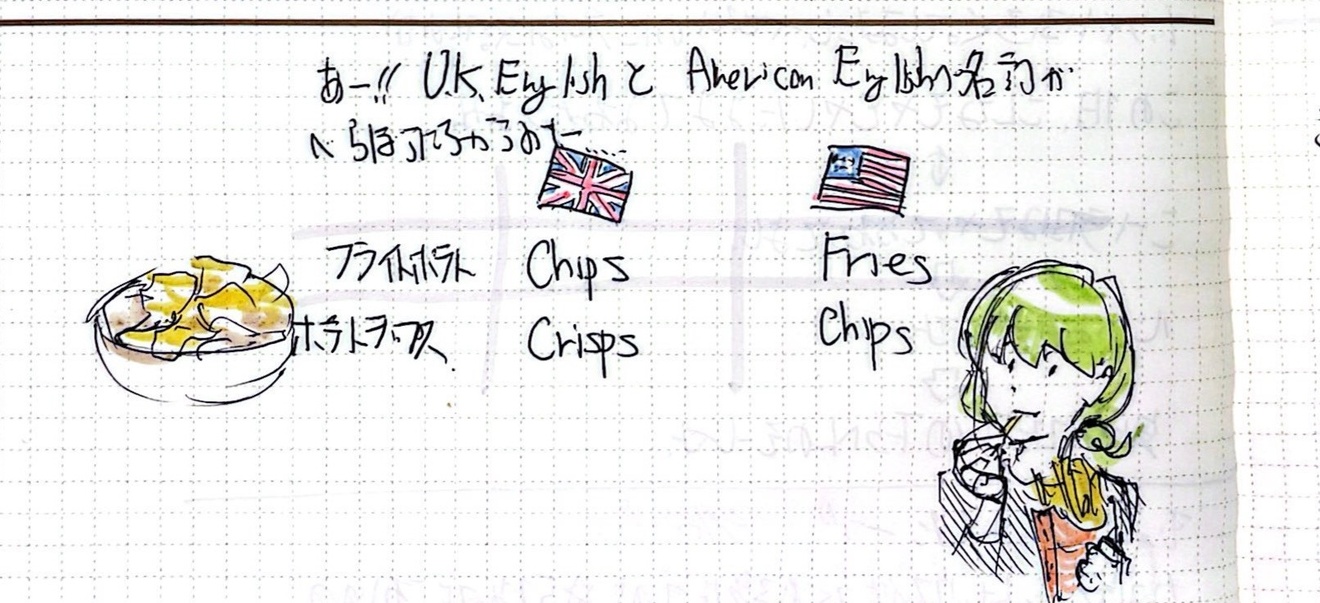 あー!! U.K. English と American Englishの名詞が
フライドポテト Chips Fries
ポテトチップス Crisps Chips